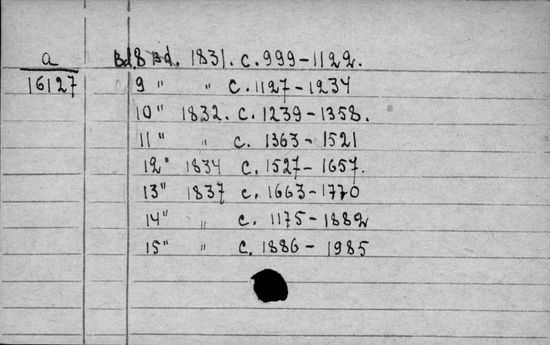 a Bd. 8 Bd. 1831. c. 999-1122.
16127 9 " " c. 1127-1234
10 " 1832. c. 1239-1358.
11 " " c. 1363-1521
12 " 1834 c. 1527-1657.
13 " 1837 c. 1663-1770
14 " " c. 1175-1882
15 " " c. 1886-1985